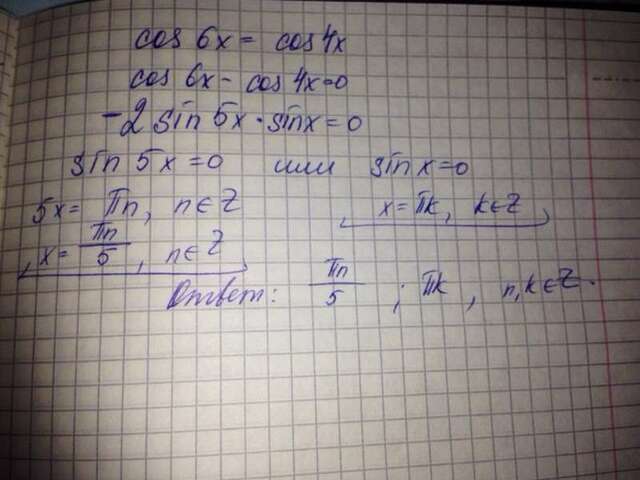 cos 6x = cos 4x
cos 6x - cos 4x = 0
-2 sin 5x · sin x = 0
sin 5x = 0 или sin x = 0
5x = πn, n ∈ Z x = πk, k ∈ Z
x = πn/5, n ∈ Z
Ответ: πn/5 ; πk, n, k ∈ Z.